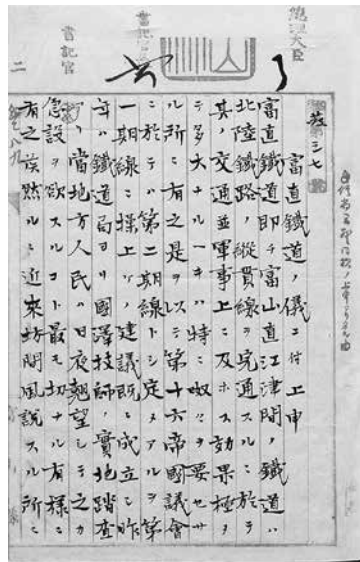 總理大臣
書記官長
書記官
二
富直鐵道ノ儀ニ付上申
富直鐵道即チ富山直江津間ノ鐵道ハ
北陸鐵路ノ縱貫線ヲ完通スルニ於テ
其ノ交通並軍事上ニ及ホス効果極メ
テ多大ナル一キハ特ニ呶々ヲ要セサ
ル所ニ有之是ヲ以テ第十六帝國議會
ニ於テハ第二期線トシ定メアルヲ第
一期線ニ操上ゲノ建議既ニ成立シ昨
年ハ鐵道局ヨリ國澤技師ノ實地踏査
アリ當地方人民ハ日夜翹望シテ之カ
急設ヲ欲スルコト最モ切ナル有様ニ
有之候然ルニ近來坊間風説スル所ニ